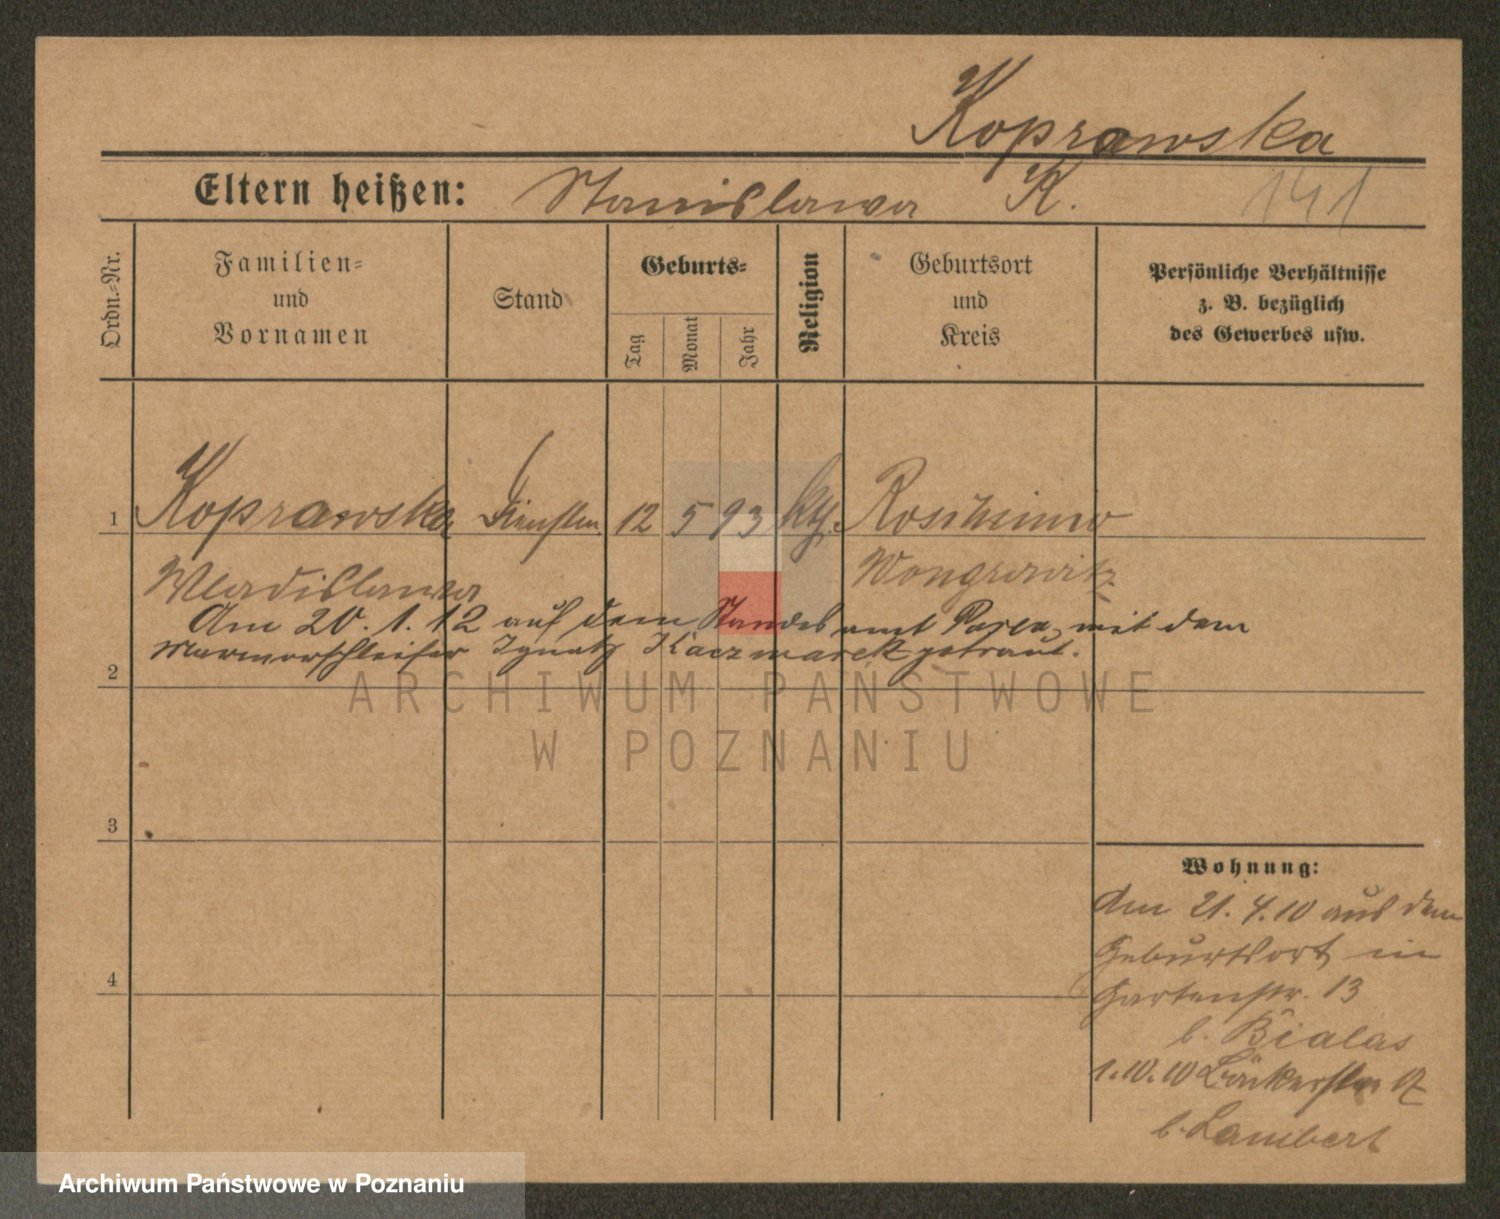 Koprawska
Eltern heißen: Stanislawa K. 141
Ordn.-Nr.
Familien-
und
Vornamen
Stand
Geburts-
Tag
Monat
Jahr
Religion
Geburtsort
und
Kreis
Persönliche Verhältnisse
z. B. bezüglich
des Gewerbes usw.
1 Koprawska 12 5 93 kth.
Wladislawa Wongrowitz
Am 20.1.12 auf dem Standesamt Posen mit dem
Marmorschleifer Ignatz Kaczmarek getraut.
2
ARCHIWUM PAŃSTWOWE
W POZNANIU
3
Wohnung:
Am 21.4.10 aus dem
Geburtsort in
4
Gartenstr. 13
b. Bialas
1.10.10 Bäckerstr
b. Lambert
Archiwum Państwowe w Poznaniu